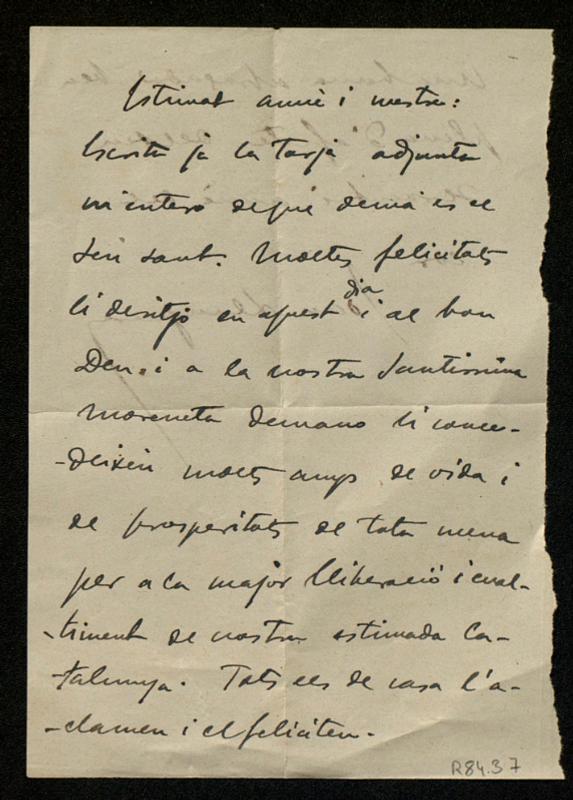 Estimat amic i mestre:
Escrita ja la tarja adjunta
m'entero de que demà es el
seu sant. Moltes felicitats
li desitjo en aquest dia i al bon
Deu i a la nostra Santissima
Moreneta demano li conce-
-deixin molts anys de vida i
de prosperitats de tota mena
per a la major lliberació i enal-
-timent de nostra estimada Ca-
-talunya. Tots els de casa l'a-
-clamen i el feliciten.
R84.37